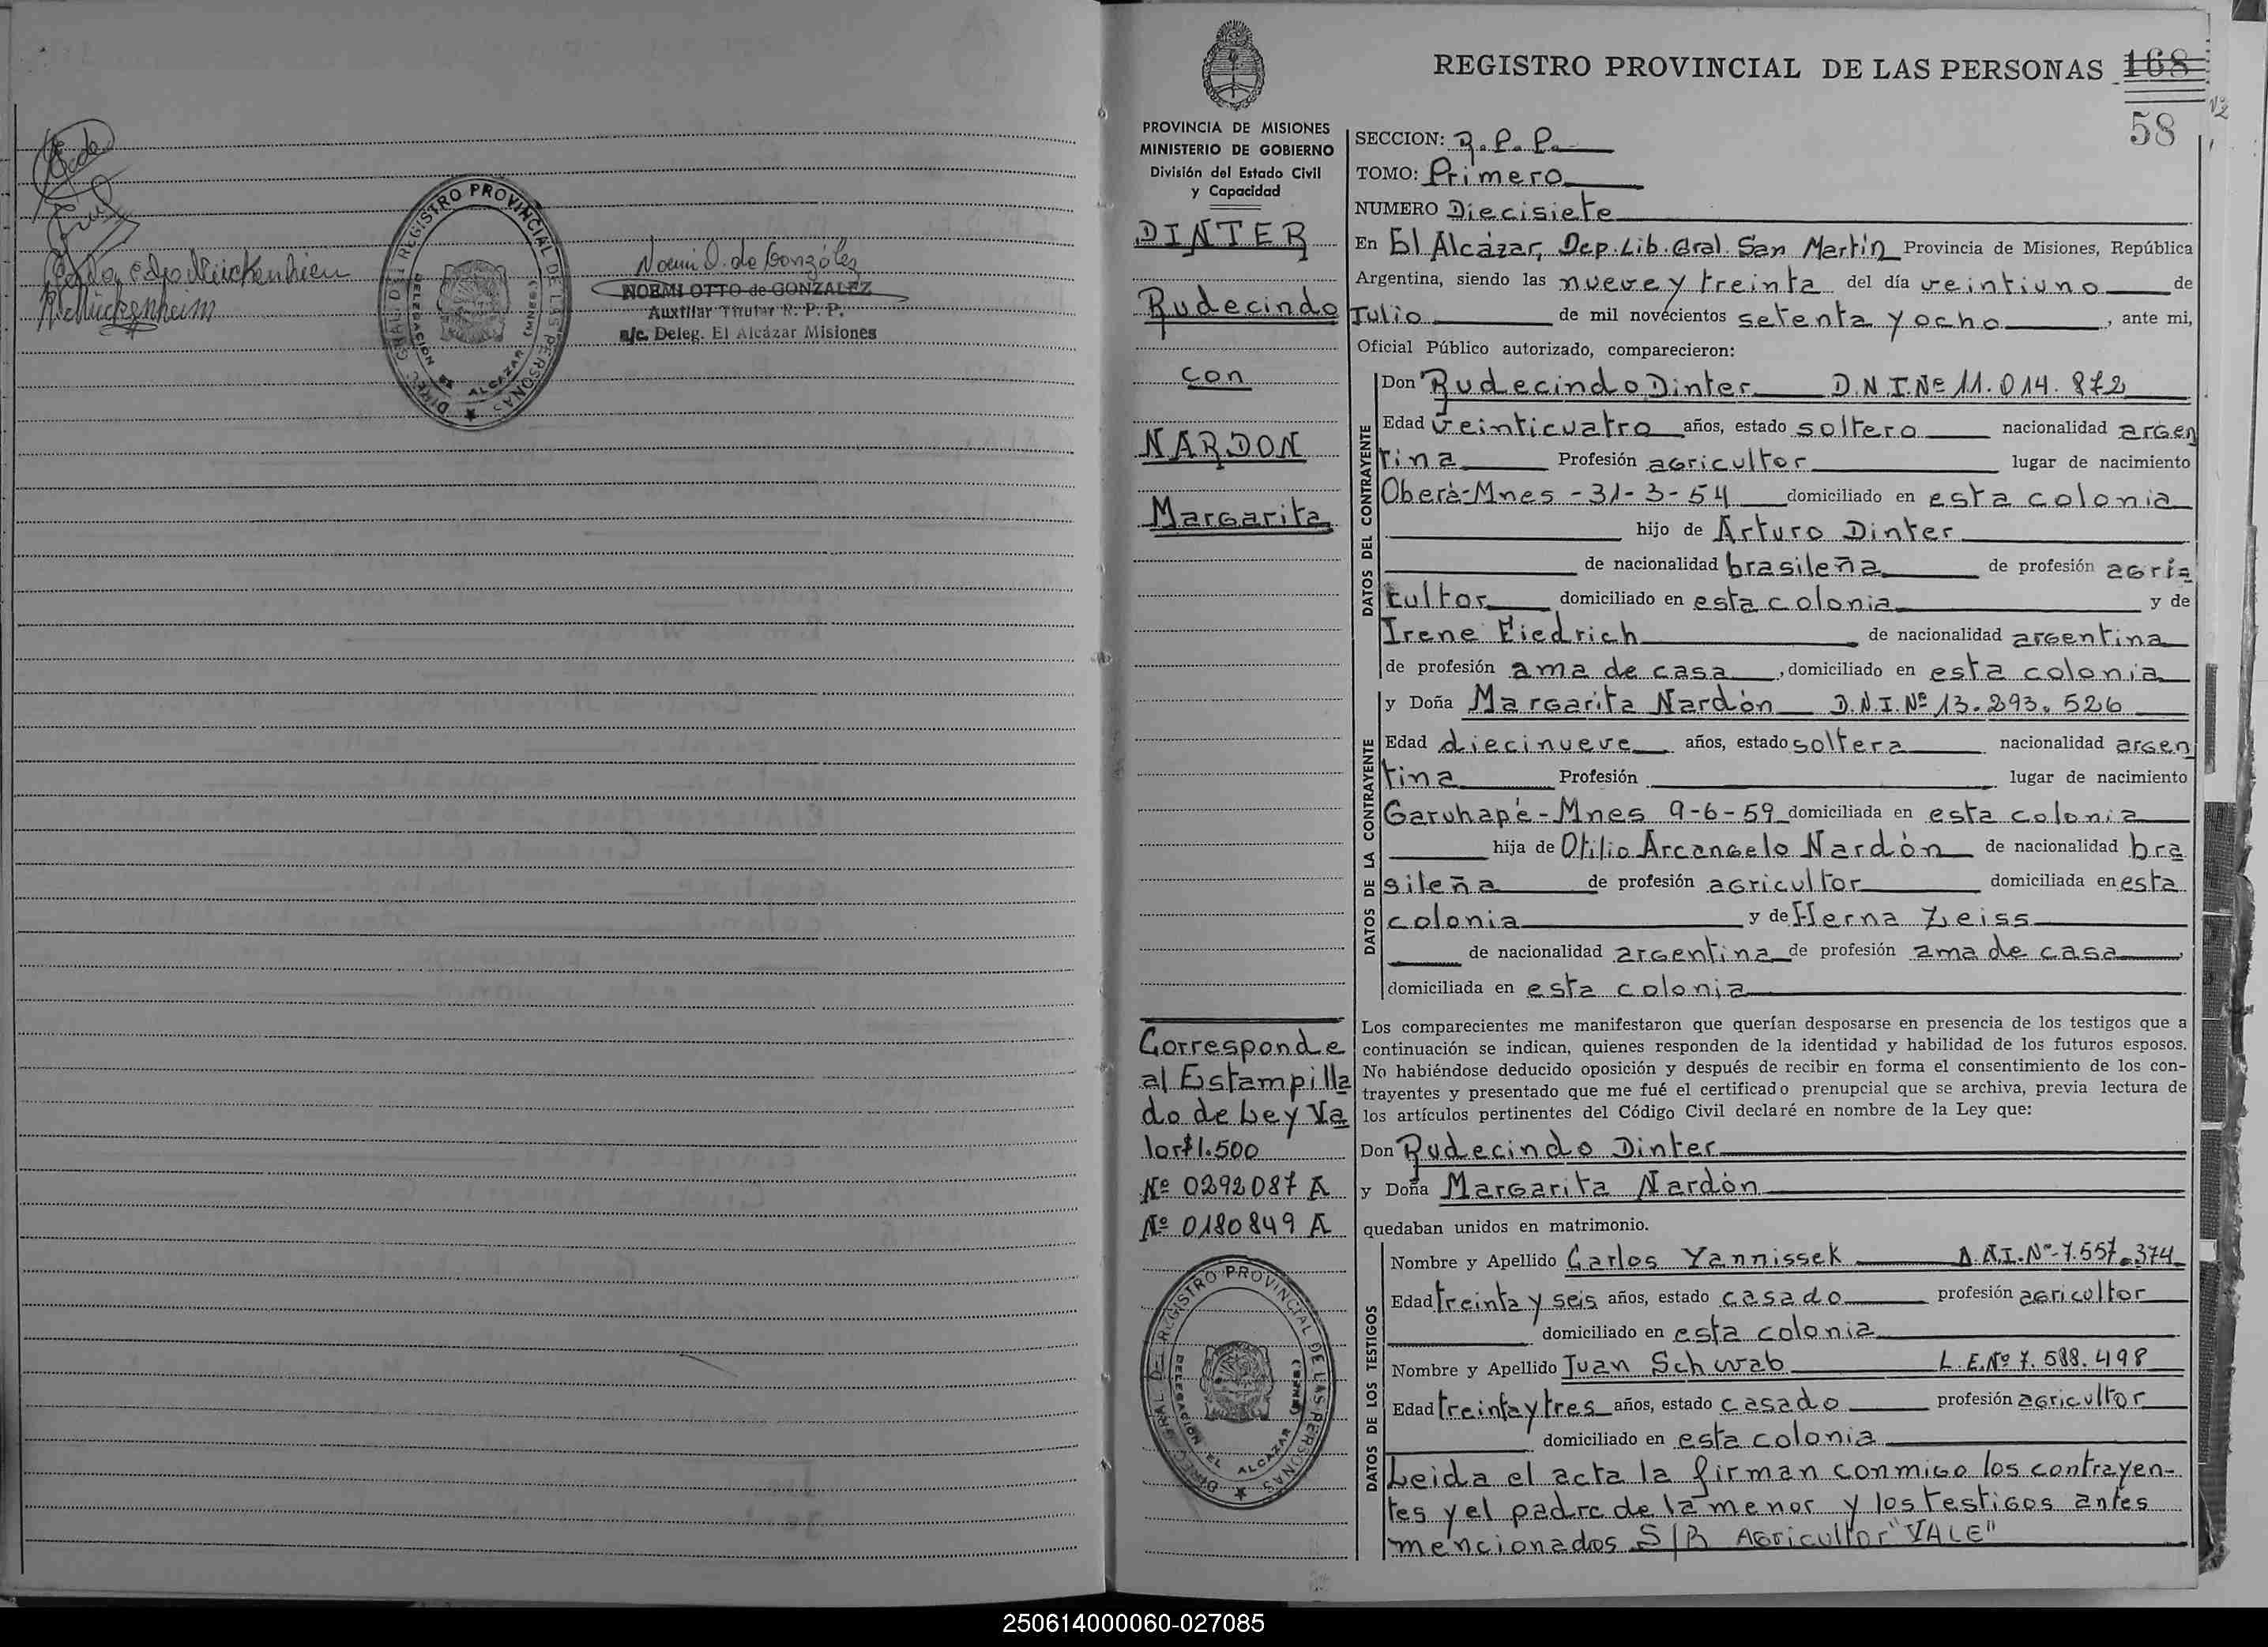 Noemi O. de González
NOEMI OTTO de GONZALEZ
Auxiliar Titular R. P. P.
a/c. Deleg. El Alcázar Misiones
DIREC. GRAL. DE REGISTRO PROVINCIAL DE LAS PERSONAS
DELEGACIÓN EL ALCAZAR (MNES)
REGISTRO PROVINCIAL DE LAS PERSONAS 168
58
PROVINCIA DE MISIONES
MINISTERIO DE GOBIERNO
División del Estado Civil
y Capacidad
DINTER
Rudecindo
con
NARDON
Margarita
Corresponde
al Estampilla
do de Ley Va
lor $1.500
Nº 0292087 A
Nº 0180849 A
DIREC. GRAL. DE REGISTRO PROVINCIAL DE LAS PERSONAS
DELEGACIÓN EL ALCAZAR (MNES)
SECCION: R.P.P.
TOMO: Primero
NUMERO Diecisiete
En El Alcázar, Dep. Lib. Gral. San Martín Provincia de Misiones, República
Argentina, siendo las nueve y treinta del día veintiuno de
Julio de mil novecientos setenta y ocho, ante mi,
Oficial Público autorizado, comparecieron:
DATOS DEL CONTRAYENTE
Don Rudecindo Dinter D.N.I. Nº 11.014.872
Edad veinticuatro años, estado soltero nacionalidad argen
tina Profesión agricultor lugar de nacimiento
Oberá-Mnes - 31-3-54 domiciliado en esta colonia
hijo de Arturo Dinter
de nacionalidad brasileña de profesión agri
cultor domiciliado en esta colonia y de
Irene Fiedrich de nacionalidad argentina
de profesión ama de casa, domiciliado en esta colonia
DATOS DE LA CONTRAYENTE
y Doña Margarita Nardón D.N.I. Nº 13.293.526
Edad diecinueve años, estado soltera nacionalidad argen
tina Profesión lugar de nacimiento
Garuhapé-Mnes 9-6-59 domiciliada en esta colonia
hija de Otilio Arcangelo Nardón de nacionalidad bra
sileña de profesión agricultor domiciliada en esta
colonia y de Herna Zeiss
de nacionalidad argentina de profesión ama de casa,
domiciliada en esta colonia
Los comparecientes me manifestaron que querían desposarse en presencia de los testigos que a
continuación se indican, quienes responden de la identidad y habilidad de los futuros esposos.
No habiéndose deducido oposición y después de recibir en forma el consentimiento de los con-
trayentes y presentado que me fué el certificado prenupcial que se archiva, previa lectura de
los artículos pertinentes del Código Civil declaré en nombre de la Ley que:
Don Rudecindo Dinter
y Doña Margarita Nardón
quedaban unidos en matrimonio.
DATOS DE LOS TESTIGOS
Nombre y Apellido Carlos Yannissek D.N.I. Nº 7.557.374
Edad treinta y seis años, estado casado profesión agricultor
domiciliado en esta colonia
Nombre y Apellido Juan Schwab L.E. Nº 7.588.498
Edad treinta y tres años, estado casado profesión agricultor
domiciliado en esta colonia
Leida el acta la firman conmigo los contrayen-
tes y el padre de la menor y los testigos antes
mencionados S/R Agricultor "VALE"
250614000060-027085